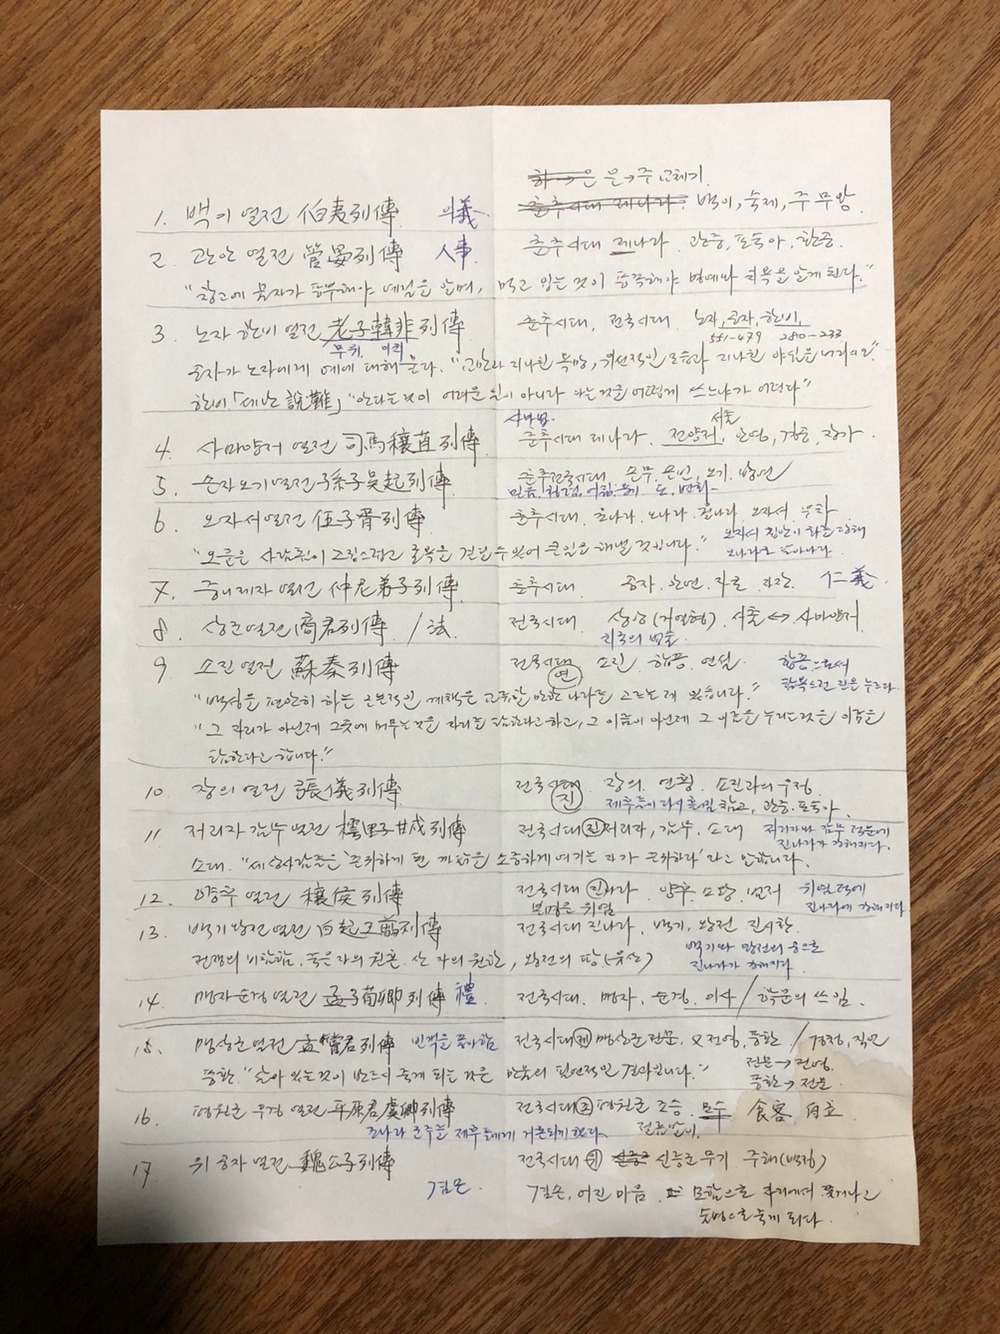 은 문→주 교체기.
1. 백이 열전 伯夷列傳 의義 백이, 숙제, 주 무왕.
2. 관안 열전 管晏列傳 人事. 춘추시대 제나라. 관중, 포숙아, 환공.
"창고에 물자가 풍부해야 예절을 알며, 먹고 입는 것이 풍족해야 명예와 치욕을 알게 된다."
3. 노자 한비 열전 老子韓非列傳 춘추시대, 전국시대 노자, 공자, 한비,
무위, 551-479 280-233
공자가 노자에게 예에 대해 묻다. "교만과 지나친 욕망, 위선적인 모습과 지나친 야심을 버리시오."
한비 「세난 說難」 "안다는 것이 어려운 일이 아니라 아는 것을 어떻게 쓰느냐가 어렵다"
서출
4. 사마양저 열전 司馬穰苴列傳 춘추시대 제나라. 전양저, 안영, 경공, 장가
5. 손자오기열전 孫子吳起列傳 춘추전국시대 손무. 손빈, 오기, 방연
6. 오자서열전 伍子胥列傳 춘추시대. 초나라. 오나라. 월나라 오자서. 부차
"오운은 사람됨이 고집스럽고 굴욕을 견딜 수 있어 큰일을 해낼 것입니다." 오자서 집안이 화를 당해
오나라로 달아나다.
7. 중니제자 열전 仲尼弟子列傳 춘추시대 공자. 안연. 자로. 자장 仁義
8. 상군열전 商君列傳 / 法. 전국시대. 상앙(공손앙). 서출 ↔ 사마양저
9 소진열전 蘇秦列傳 전국시대 연 소진. 합종. 연설 합종으로써
"백성을 편안히 하는 근본적인 계책은 교류할 만한 나라를 고르는 데 있습니다."
"그 자리가 아닌데 그곳에 머무는 것을 자리를 탐한다고 하고, 그 이름이 아닌데 그 이름을 누리는 것은 이름을
탐한다고 합니다."
10. 장의 열전 張儀列傳 전국시대 진 장의. 연횡. 소진과의 우정.
관중. 포숙아.
11 저리자 감무 열전 樗里子甘茂列傳 전국시대 진 저리자, 감무, 소대 저리자와 감무 때문에
진나라가 강해지다.
소대. "세상 사람들은 '존귀하게 된 까닭을 소중하게 여기는 자가 존귀하다'라고 말합니다.
12. 양후 열전 穰侯列傳 전국시대 진나라. 양후. 소왕. 범저 위염 덕에
본명은 위염 진나라가 강해지다
13. 백기왕전열전 白起王翦列傳 전국시대 진나라. 백기, 왕전, 진시황
전쟁의 비참함. 죽은 자의 원혼. 산 자의 원한, 왕전의 땅(유산) 백기와 왕전의 공으로
진나라가 강해지다.
14. 맹자순경열전 孟子荀卿列傳 禮. 전국시대. 맹자, 순경, 이사 / 학문의 쓰임.
15. 맹상군열전 孟嘗君列傳 빈객을 좋아함 전국시대 제 맹상군 전문, 父전영, 풍환 / 경청, 직언
전문→전영
풍환→전문
풍환. "살아 있는 것이 반드시 죽게 되는 것은 만물의 필연적인 결과입니다."
16 평원군 우경 열전 平原君虞卿列傳 전국시대 조 평원군 조승. 모수 食客 自主
17 위공자 열전 魏公子列傳 전국시대 위 신릉군 무기 주해(백정)
겸손. 겸손, 어진 마음. 모함으로 자리에서 쫓겨나고
술병으로 죽게 되다.